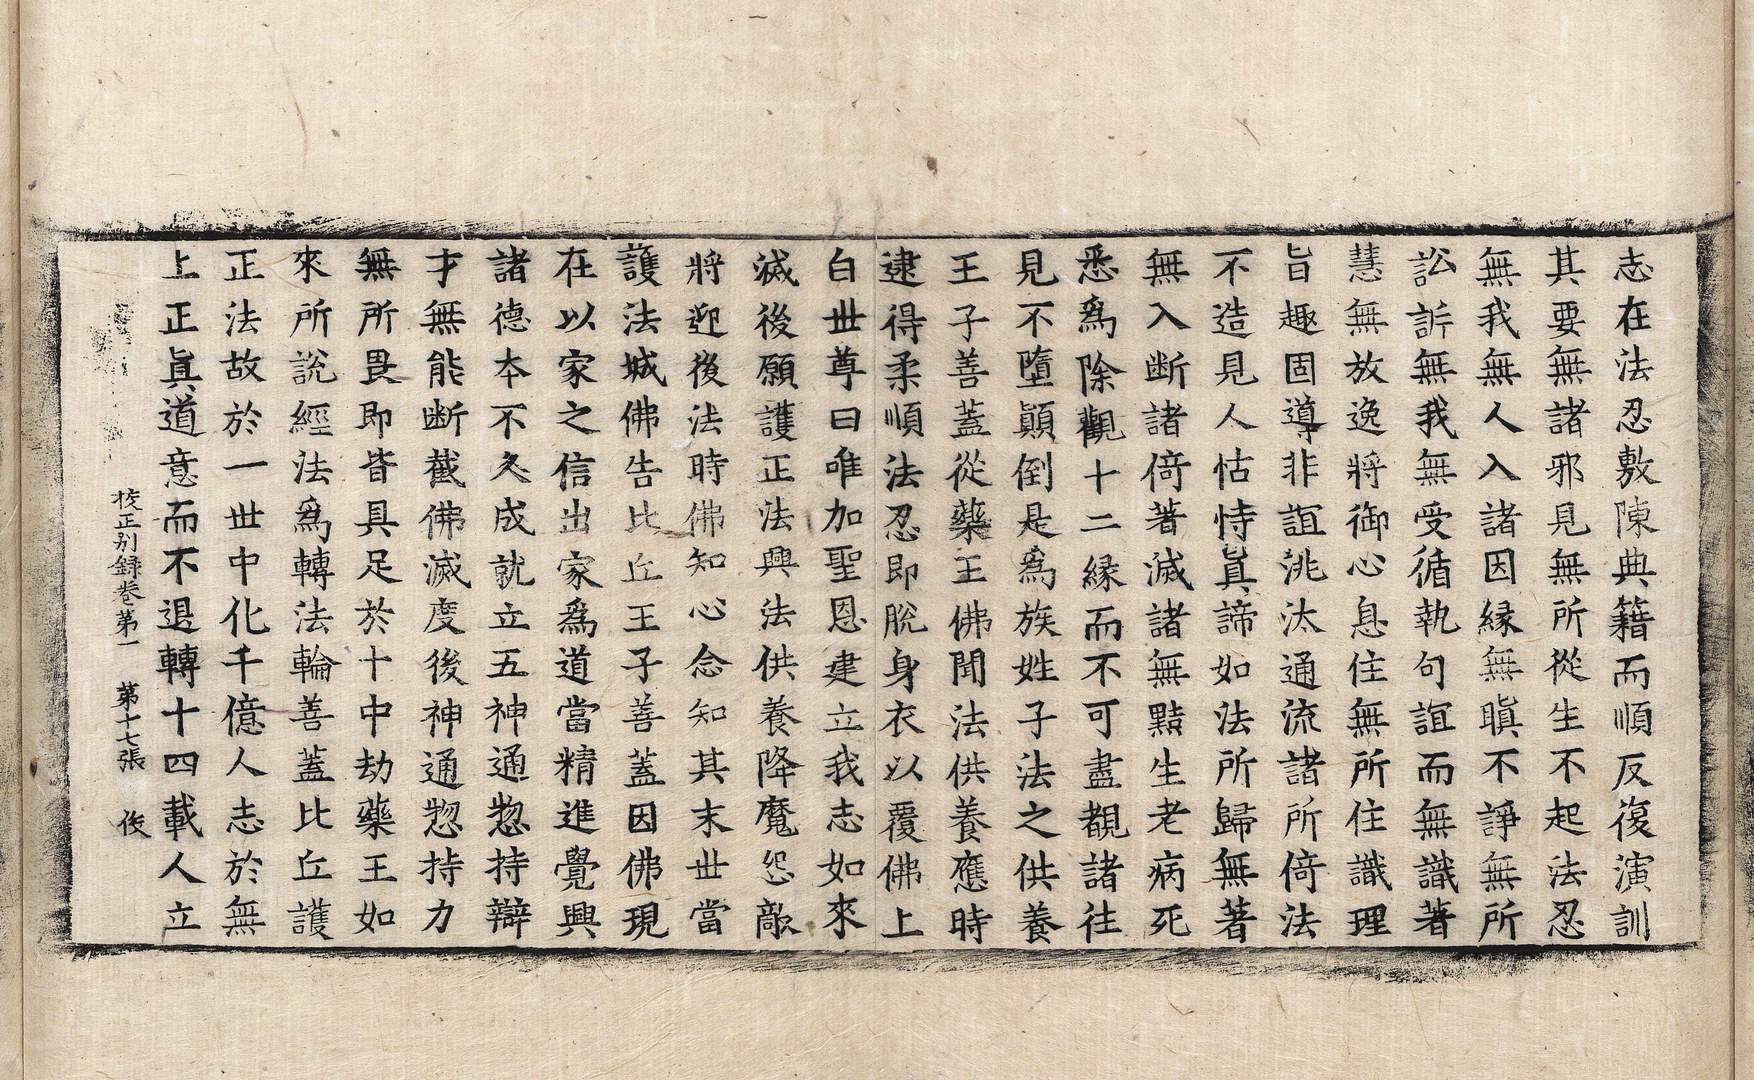 志在法忍敷陳典籍而順反復演訓
其要無諸邪見無所從生不起法忍
無我無人入諸因縁無瞋不諍無所
訟訴無我無受循執句誼而無識著
慧無放逸將御心息住無所住識理
旨趣固導非誼洮汰通流諸所倚法
不造見人怙恃眞諦如法所歸無著
無入断諸倚著滅諸無黠生老病死
悉爲除觀十二縁而不可盡覩諸徃
見不墮顚倒是爲族姓子法之供養
王子善蓋從藥王佛聞法供養應時
逮得柔順法忍即脫身衣以覆佛上
白世尊曰唯加聖恩建立我志如來
滅後願護正法興法供養降魔怨敵
將迎後法時佛知心念知其末世當
護法城佛告比丘王子善蓋因佛現
在以家之信出家爲道當精進覺興
諸德本不久成就立五神通惣持辯
才無能断截佛滅度後神通惣持力
無所畏即皆具足於十中劫藥王如
來所說經法爲轉法輪善蓋比丘護
正法故於一世中化千億人志於無
上正眞道意而不退轉十四載人立
挍正别録卷第一　第十七張　俊